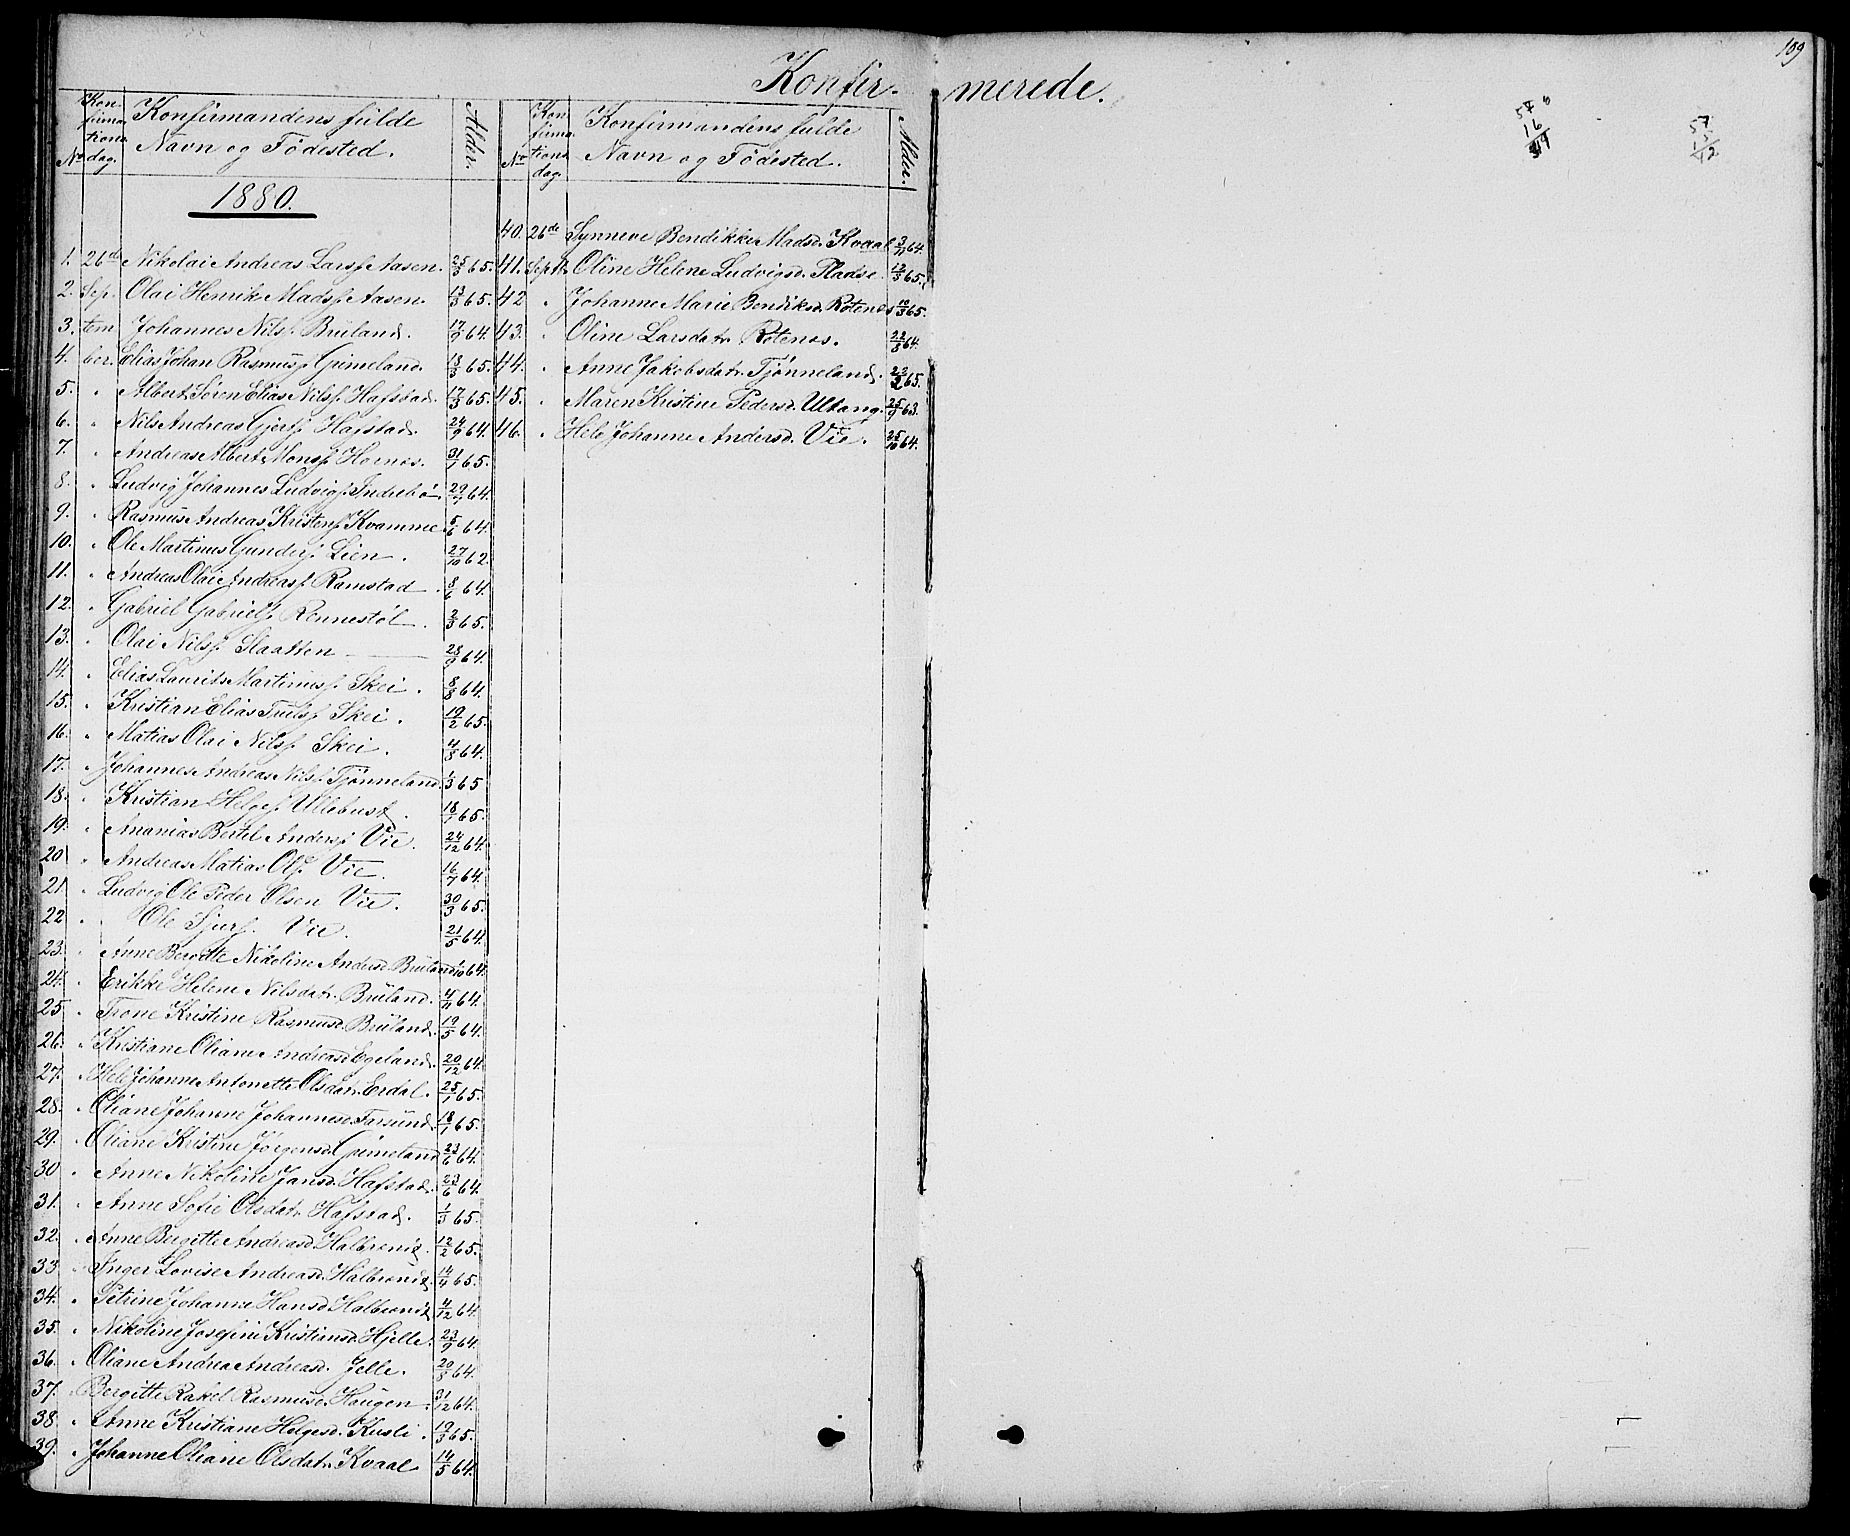 109
Konfir- merede.
No Konfirmationsdag. Konfirmandens fulde Navn og Födested. Alder.
No Konfirmationsdag. Konfirmandens fulde Navn og Födested. Alder.
57 16
57 15/12
1880.
1. 26de Nikolai Andreas Larss. Aasen. 25/3 65.
2. Sep. Olai Henrik Madss. Aasen. 13/3 65.
3. tem Johannes Nilss. Bruland. 17/9 64.
4. ber. Elias Johan Rasmuss. Grimeland. 18/3 65.
5. " Albert Sören Elias Nilss. Hafstad. 17/3 65.
6. " Nils Andreas Gjerts. Hafstad. 24/9 64.
7. " Andreas Albert Monss. Hornes. 31/1 65.
8. " Ludvig Johannes Ludvigs. Indrebö 29/7 64.
9. " Rasmus Andreas Kristens. Kvamme. 5/6 64.
10. " Ole Martinus Gunders. Lien. 27/10 62.
11. " Andreas Olai Andreass. Ramstad. 8/6 64.
12. " Gabriel Gabriels. Rennestöl. 2/3 65.
13. " Olai Nilss. Slaatten 28/9 64.
14. " Elias Laurits Martinuss. Skei. 8/8 64.
15. " Kristian Elias Truls. Skei. 19/2 65.
16. " Matias Olai Nilss. Skei. 4/8 64.
17. " Johannes Andreas Nilss. Tjønneland. 1/3 65
18. " Kristian Helges. Ullebust. 18/1 65.
19. " Ananias Bertel Anders. Vie. 24/12 64.
20 " Andreas Matias Ols. Vie. 16/7 64.
21 " Ludvig Ole Peder Olsen Vie. 30/3 65.
22 " Ole Sjurs. Vie. 21/5 64.
23. " Anne Berntte Nikoline Andersd. Bruland 1/10 64.
24. " Erikke Helene Nilsdatr. Bruland. 4/11 64.
25 " Trone Kristine Rasmusd. Bruland. 19/5 64.
26. " Kristiane Oliane Andreasd. Egeland. 20/12 64.
27. " Hele Johanne Antonette Olsdatr. Erdal. 25/1 65.
28. " Oliane Johanne Johannesd. Farsund. 18/1 65.
29. " Oliane Kristine Jørgensd. Grimeland 23/6 64.
30 " Anne Nikoline Jansd. Hafstad. 23/6 64.
31. " Anne Sofie Olsdatr. Hafstad. 1/3 65.
32. " Anne Birgitte Andreasd. Halbrendt. 12/2 65.
33 " Inger Lovise Andreasd. Halbrendt. 14/4 65.
34. " Petrine Johanne Hansd. Halbrendt 4/12 64.
35. " Nikoline Josefine Kristiansd. Hjelle. 23/9 64.
36. " Oliane Andrea Andreasd. Jelle. 20/8 64.
37. " Bergitte Rakel Rasmusd. Haugen. 31/12 64.
38. " Anne Kristiane Helgesd. Kusli. 19/3 65.
39. " Johanne Oliane Olsdatr. Kvaal 14/5 64.
40. 26de Synneve Bendikke Madsd. Kvaal 3/11 64.
41. Septb. Oline Helene Ludvigsd. Pladse. 12/3 65.
42 " Johanne Marie Bendiksd. Rotenes 10/3 65.
43. " Oline Larsdatr. Rotenes. 22/8 64.
44. " Anne Jakobsdatr. Tjønneland. 22/2 65.
45. " Maren Kristine Pedersd. Ultang. 25/9 63.
46. " Hele Johanne Andersd. Vie. 25/10 64.